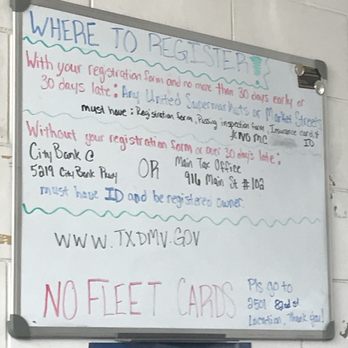 WHERE TO REGISTER!
With your registration form and no more than 30 days early or
30 days late: Any United Supermarkets or Market Street
must have: Registration form, Passing inspection form, Insurance card, &
ID
Without your registration form or over 30 days late:
City Bank @
5219 City Bank Pkwy
OR
Main Tax Office
916 Main St #102
must have ID and be registered owner
WWW.TXDMV.GOV
NO FLEET CARDS
Pls go to
2501 82nd st
location, Thank you!